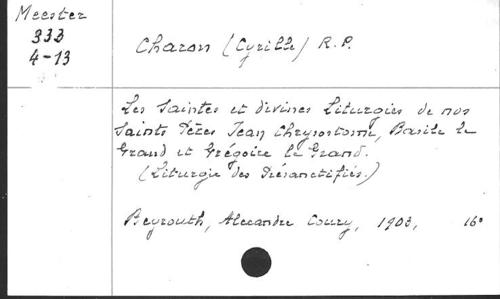 Meester
333
4-13
Charon (Cyrille) R.P.
Les Saintes et divines Liturgies de nos
Saints Pères Jean Chrysostome, Basile le
Grand et Grégoire le Grand.
(Liturgie des Présanctifiés.)
Beyrouth, Alexandre Coury, 1903, 16°